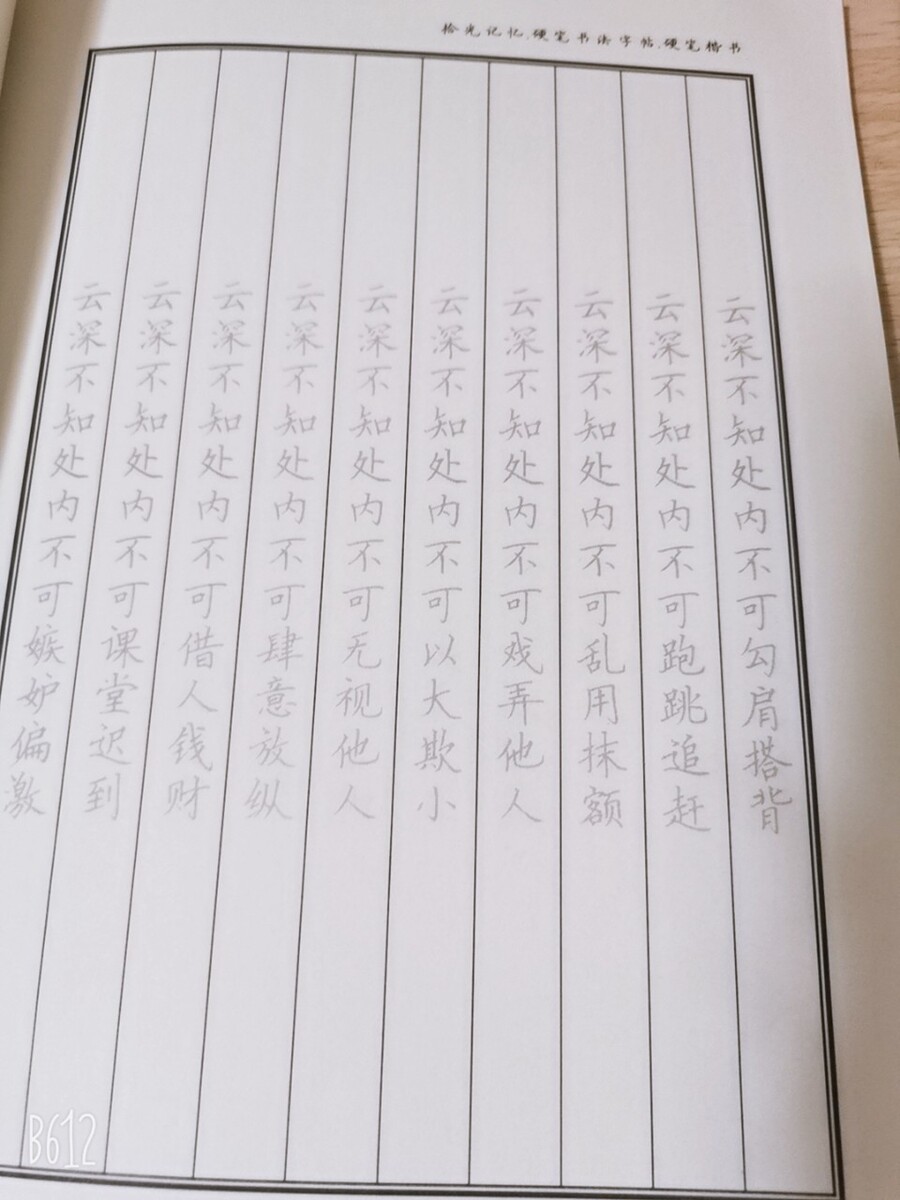 拾光记忆.硬笔书法字帖.硬笔楷书
云深不知处内不可勾肩搭背
云深不知处内不可跑跳追赶
云深不知处内不可乱用抹额
云深不知处内不可戏弄他人
云深不知处内不可以大欺小
云深不知处内不可无视他人
云深不知处内不可肆意放纵
云深不知处内不可借人钱财
云深不知处内不可课堂迟到
云深不知处内不可嫉妒偏激
B612